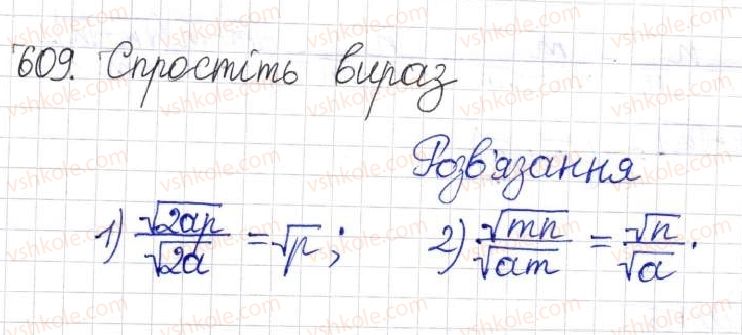 609. Спростіть вираз
Розв'язання
1) √2ap / √2a = √p; 2) √mn / √am = √n / √a.